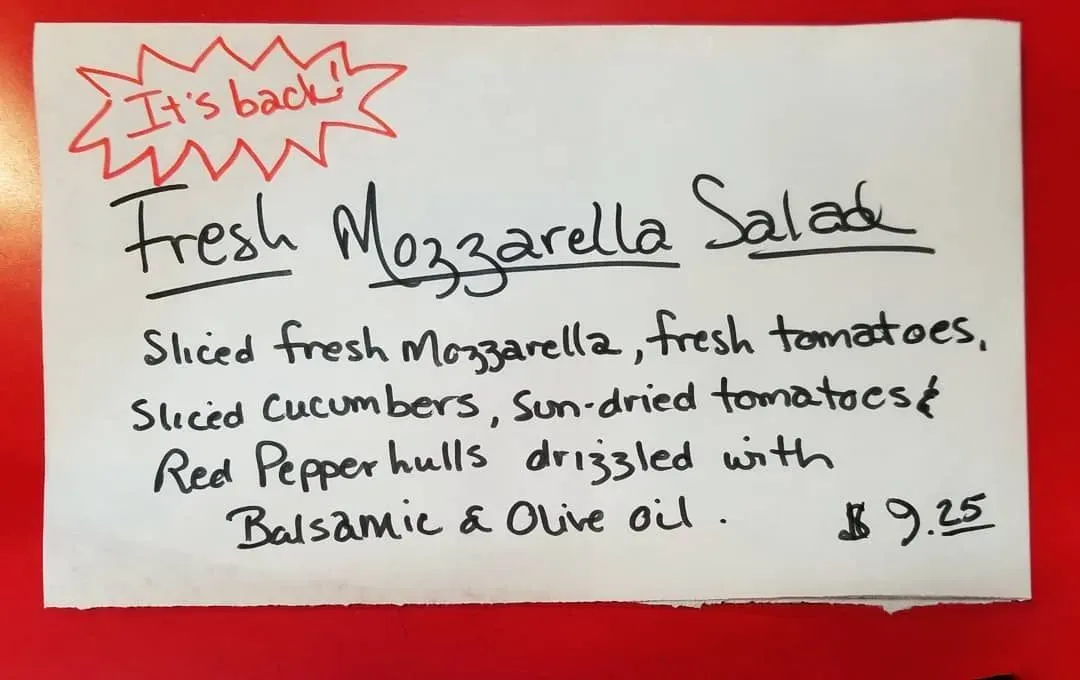 It's back!
Fresh Mozzarella Salad
Sliced fresh Mozzarella, fresh tomatoes,
Sliced Cucumbers, Sun-dried tomatoes &
Red Pepper hulls drizzled with
Balsamic & Olive oil.
$9.25